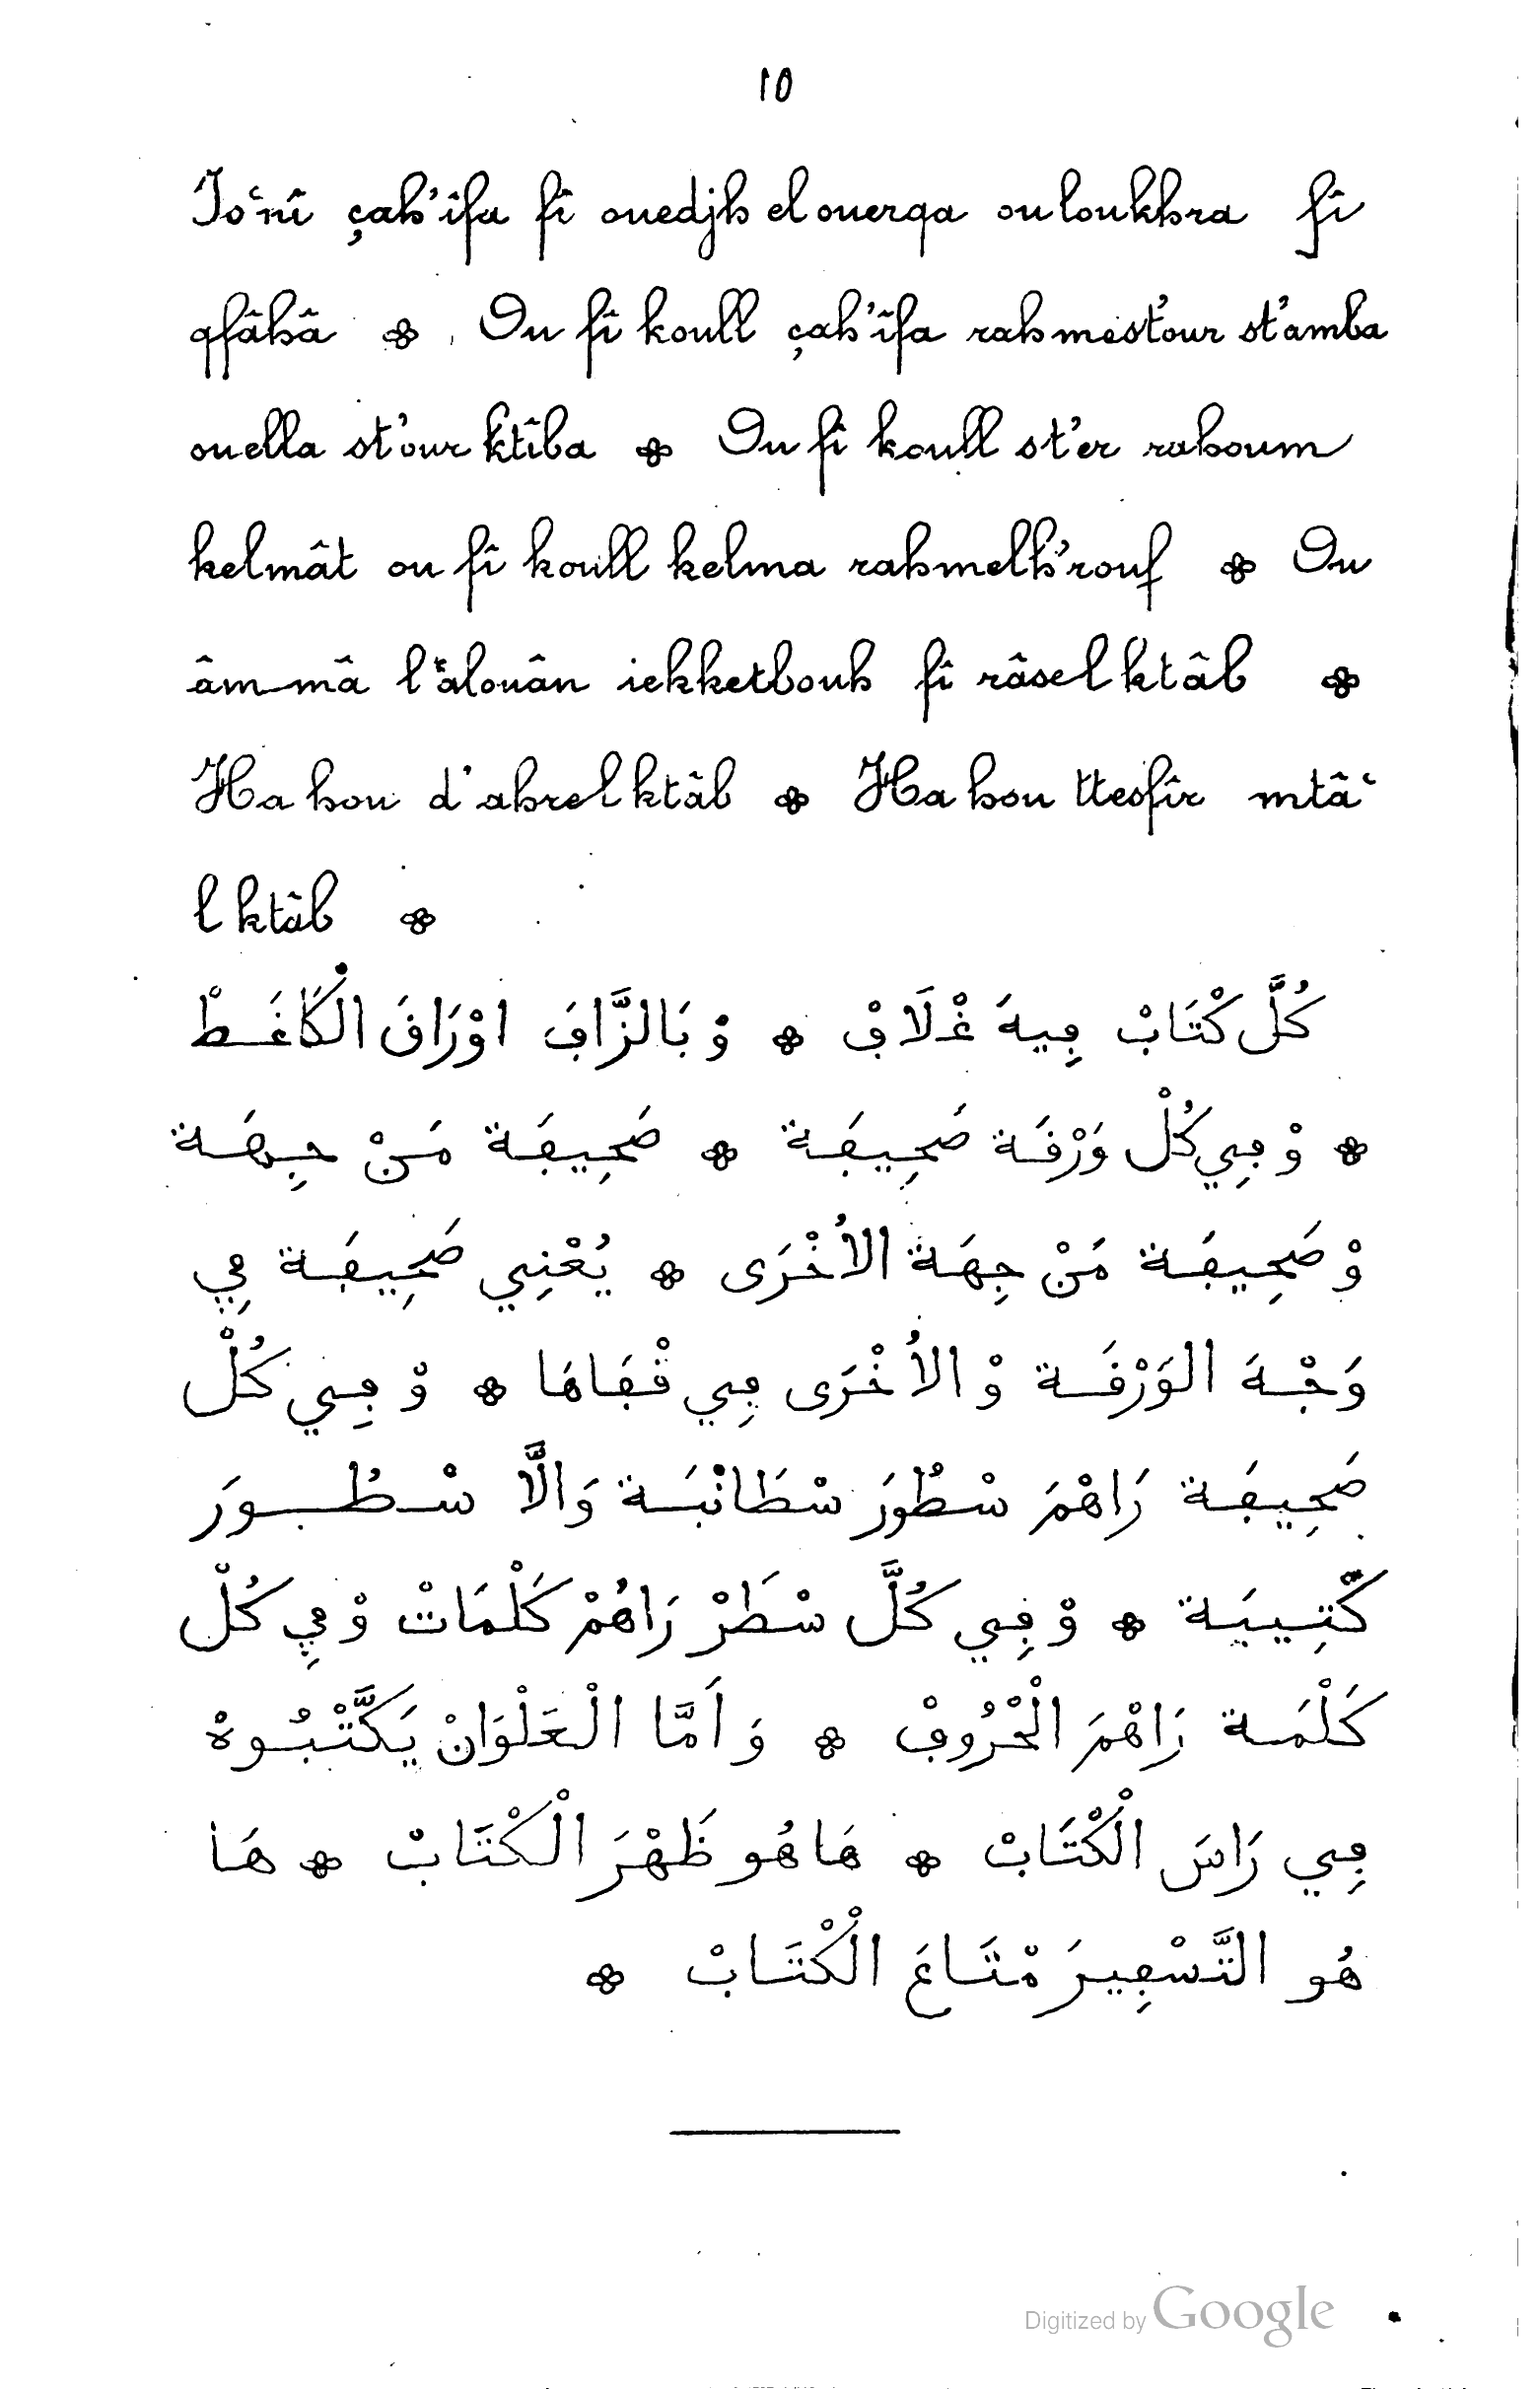 10
Io‘nî çah’îfa fî ouedjh el ouerqa ou loukhra fî
qfâhâ ✤ Ou fî koull çah’îfa rahmest’our st’amba
ouella st’our ktîba ✤ Ou fî koull st’er rahoum
kelmât ou fî koull kelma rahmelh’rouf ✤ Ou
âmmâ l‘alouân iekketbouh fî râsel ktâb ✤
Ha hou d’ahrel ktâb ✤ Ha hou ttesfîr mtâ‘
l ktâb ✤
كُلَّ كْتَابْ ڢِيهَ غْلَاڢْ ✤ وْ بَالزَّاڢَ اوْرَاقَ الْكَاغَـطْ
✤ وْ ڢِي كُلْ وَرْفَة صَحِيڢَة ✤ صَحِيڢَة مَنْ جِهَـة
وْ صَحِيڢَة مَنْ جِهَة الاُخْرَى ✤ يُعْنِي صَحِيڢَة ڢِي
وَجْـهَ الوَرْفَـة وْ الاُخْرَى ڢِي قْڢَاهَا ✤ وْ ڢِي كُلْ
صَحِيڢَة رَاهْمَ سْطُورَ سْطَانْبَـة وَالَّا سْـطُـورَ
كْتِيبَـة ✤ وْ ڢِي كُلَّ سْطَرْ رَاهُمْ كَلْمَاتْ وْ ڢِي كُلْ
كَلْمَـة رَاهْمَ الْحْرُوڢْ ✤ وَ اَمَّا الْعَلْوَانْ يَكَّتْبُـوهْ
ڢِي رَاسَ الْكْتَابْ ✤ هَا هُو ظَهْرَ الْكْتَابْ ✤ هَا
هُو التَّسْڢِيرَ مْتَـاعَ الْكْتَـابْ ✤
Digitized by Google